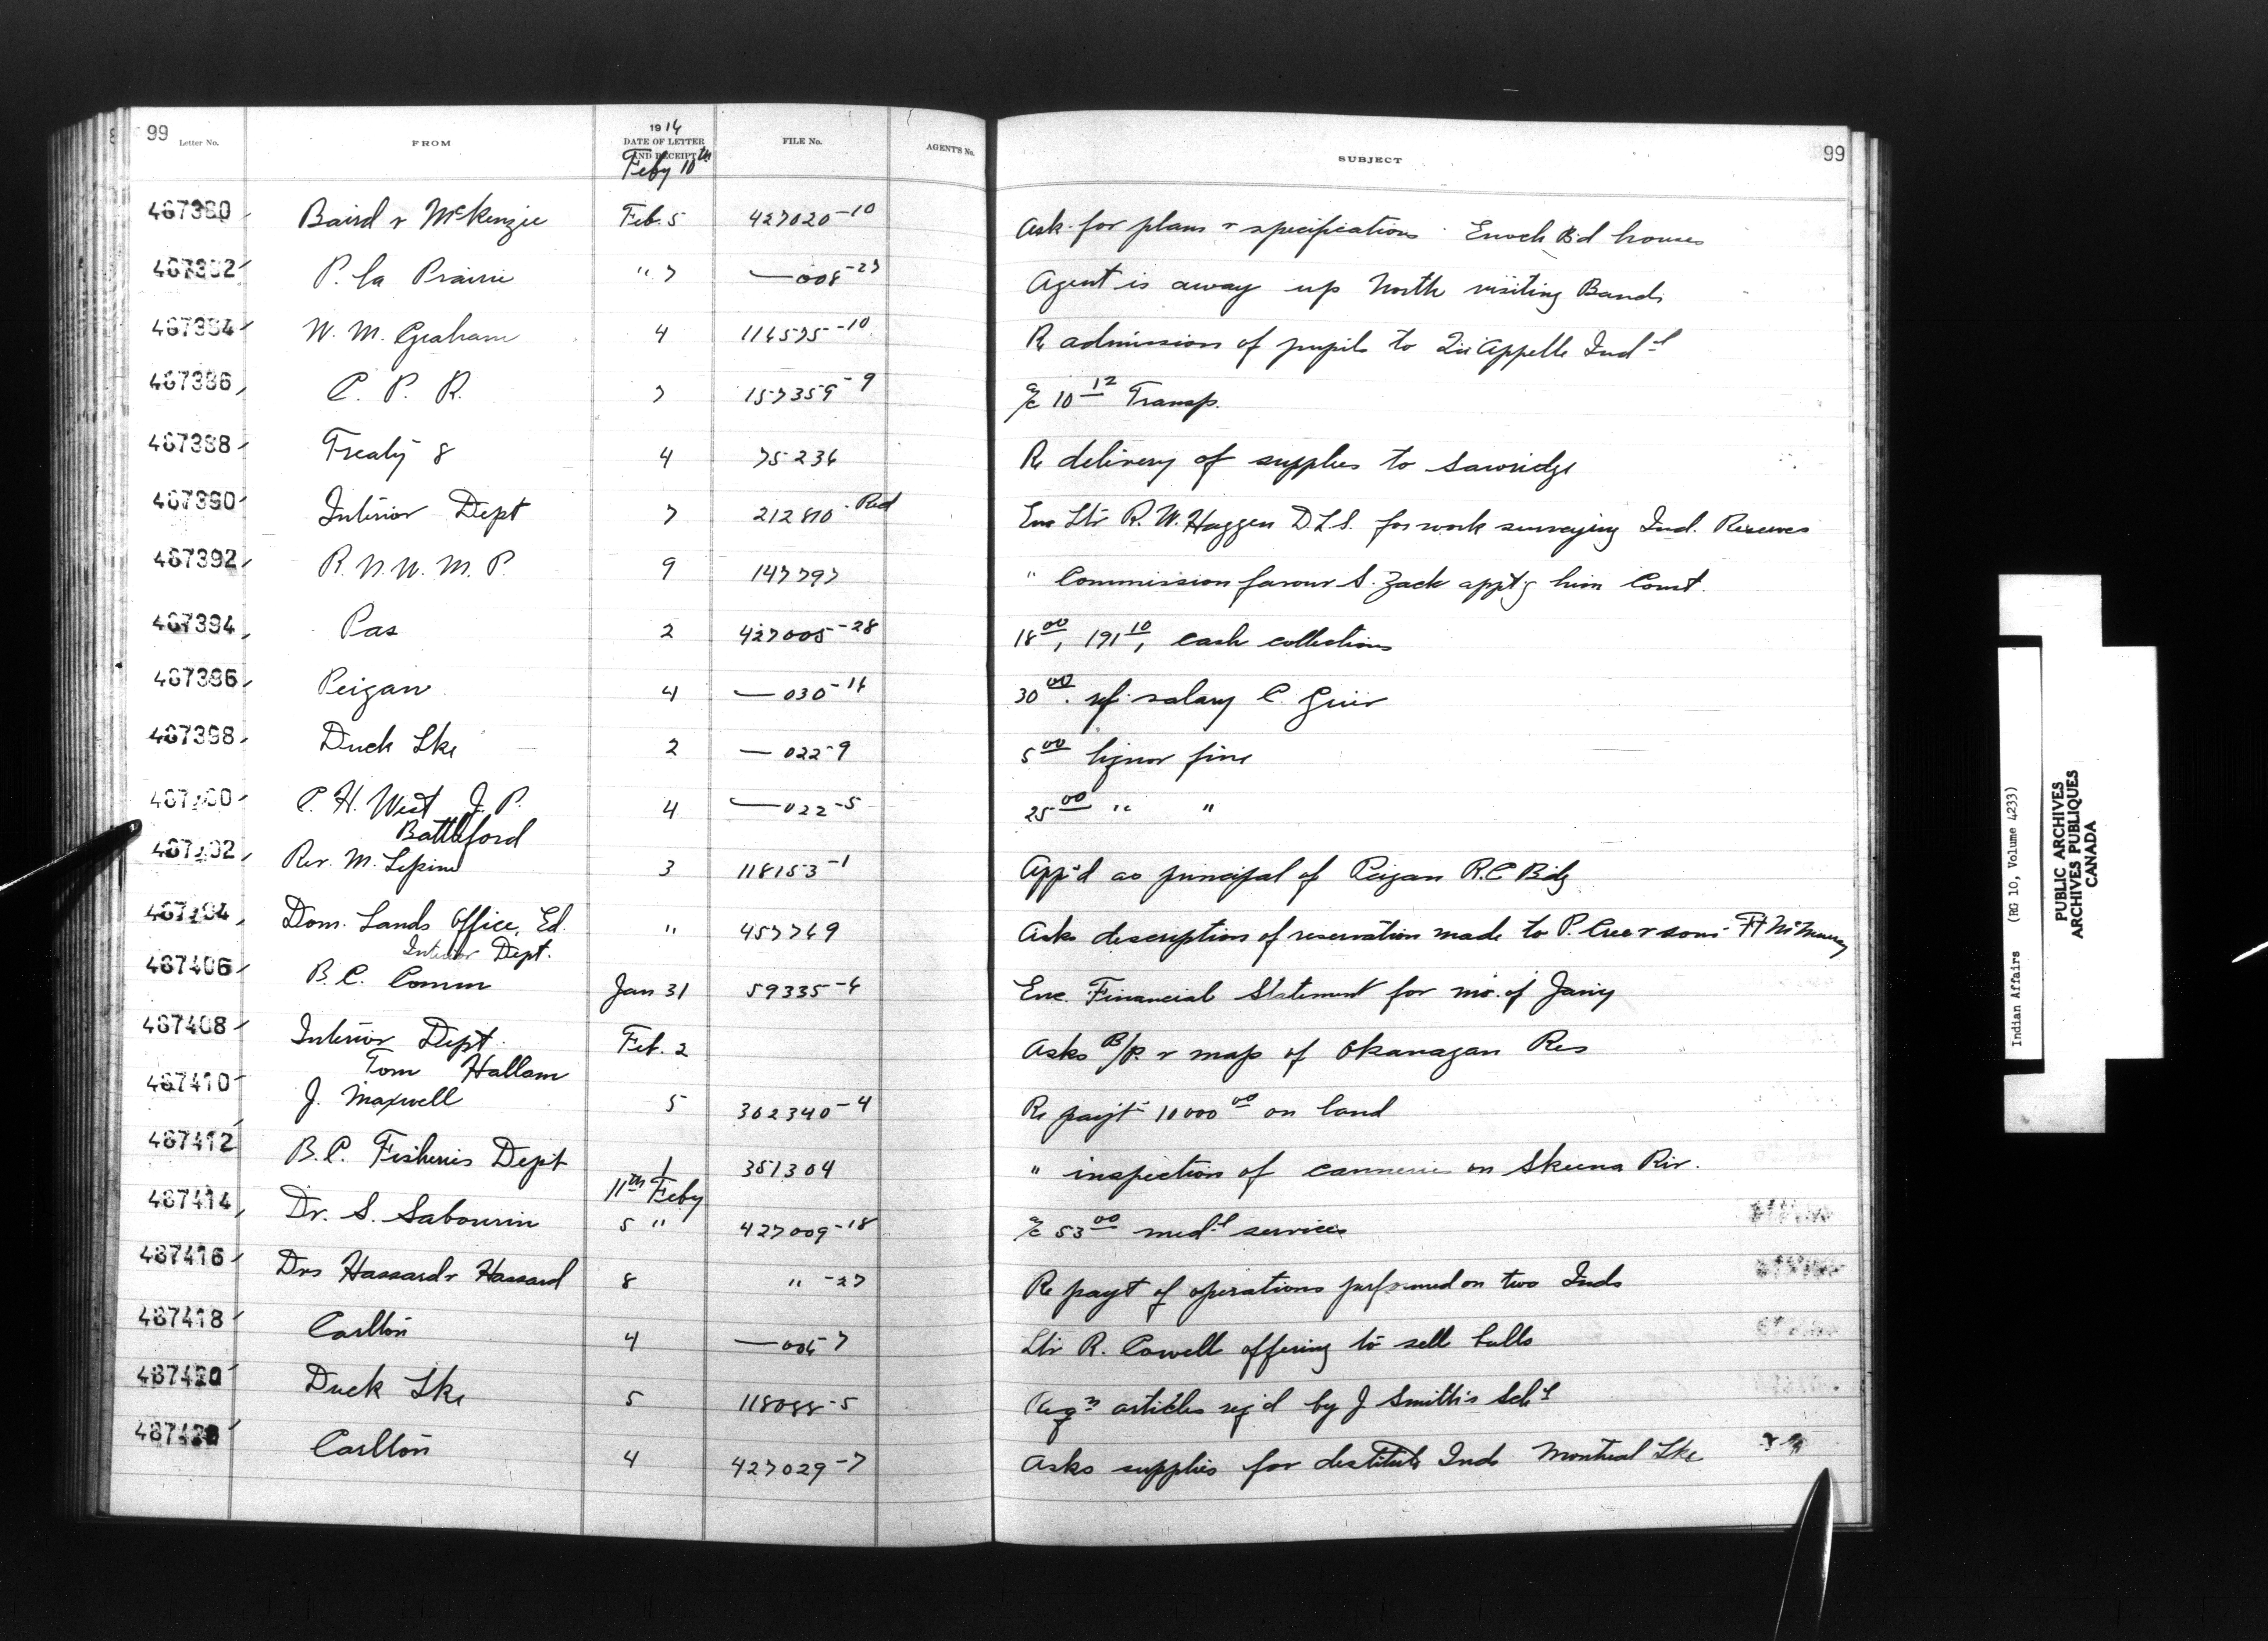 99 Letter No. FROM 1914 DATE OF LETTER AND RECEIPT FILE No. AGENT'S No. SUBJECT 99
Feby 10th
467380 Baird & McKenzie Feb. 5 427020-10 Ask for plans & specifications Enoch Bd houses
467382 P. la Prairie " 7 —008-27 Agent is away up North visiting Bands
467384 W. M. Graham 4 114575-10 Re admission of pupils to Qu'Appelle Indl
467386 C. P. R. 7 157359-9 a/c 10 12 Transp.
467388 Treaty 8 4 75236 Re delivery of supplies to Sawridge
467390 Interior Dept 7 212810 Red Enc Ltr R. W. Haggen D.L.S. for work surveying Ind. Reserves
467392 R. N. W. M. P. 9 147797 " Commission favour S. Zack appt'g him Const.
467394 Pas 2 427005-28 18 00, 191 10, cash collections
467396 Peigan 4 —030-14 30 00 ref. salary C. Grier
467398 Duck Lke 2 —022-9 5 00 liquor fine
467400 C. H. West J. P. 4 —022-5 25 00 " "
Battleford
467402 Rev. M. Lepine 3 118153-1 App'd as principal of Peigan R.C Bdg
467404 Dom. Lands Office, Ed. " 457749 Asks description of reservation made to P. Cree & sons - Ft McMurray
Interior Dept.
467406 B. C. Comm Jan 31 59335-4 Enc. Financial Statement for mo. of Jan'y
467408 Interior Dept. Feb. 2 Asks B/P. & map of Okanagan Res
Tom Hallam
467410 J. Maxwell 5 302340-4 Re payt 10000 00 on land
467412 B.C. Fisheries Dept 1 351304 " inspection of canneries on Skeena Riv.
11th Feby
467414 Dr. S. Sabourin 5 " 427009-18 a/c 53 00 medl services
467416 Drs Hassard & Hassard 8 " -27 Re payt of operations performed on two Inds
467418 Carlton 4 —006-7 Ltr R. Cowell offering to sell bulls
467420 Duck Lke 5 118088-5 Reqn articles req'd by J Smith's Schl
Carlton 4 427029-7 Asks supplies for destitute Inds Montreal Lke
Indian Affairs (RG 10, Volume 4233)
PUBLIC ARCHIVES
ARCHIVES PUBLIQUES
CANADA